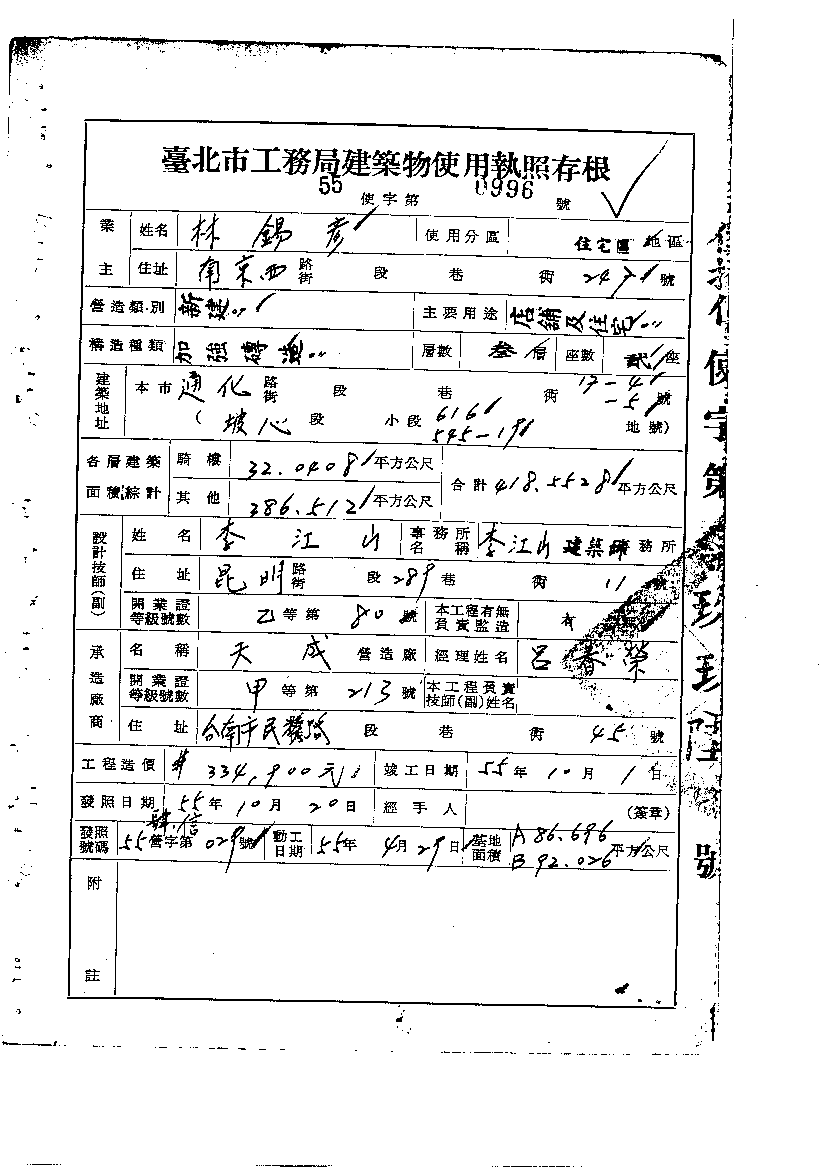 臺北市工務局建築物使用執照存根
55 使字第 0996 號
業主 姓名 林錫彥 使用分區 住宅區 地區
住址 南京西路街 段 巷 街 247 號
營造類別 新建 主要用途 店舖及住宅
構造種類 加強磚造 層數 叁層 座數 貳座
建築地址 本市 通化路街 段 巷 街 17-4 -5 號
(坡心段 小段 616 545-19 地號)
各層建築面積綜計 騎樓 32.0408平方公尺 合計418.5528平方公尺
其他 386.512平方公尺
設計技師(副) 姓名 李江山 事務所名稱 李江山建築師務所
住址 昆明路街 段289巷 街 11 號
開業證等級號數 乙等第 80 號 本工程有無負責監造 有
承造廠商 名稱 天成 營造廠 經理姓名 呂春榮
開業證等級號數 甲等第 213號 本工程負責技師(副)姓名
住址 台南市民權路 段 巷 街 45 號
工程造價 334,900元 竣工日期 55年10月1日
發照日期 55年10月20日 經手人 (簽章)
發照號碼 55營字第029號 動工日期 55年4月29日 基地面積 A86.696 B92.026平方公尺
附註
使字第 玖玖陸號